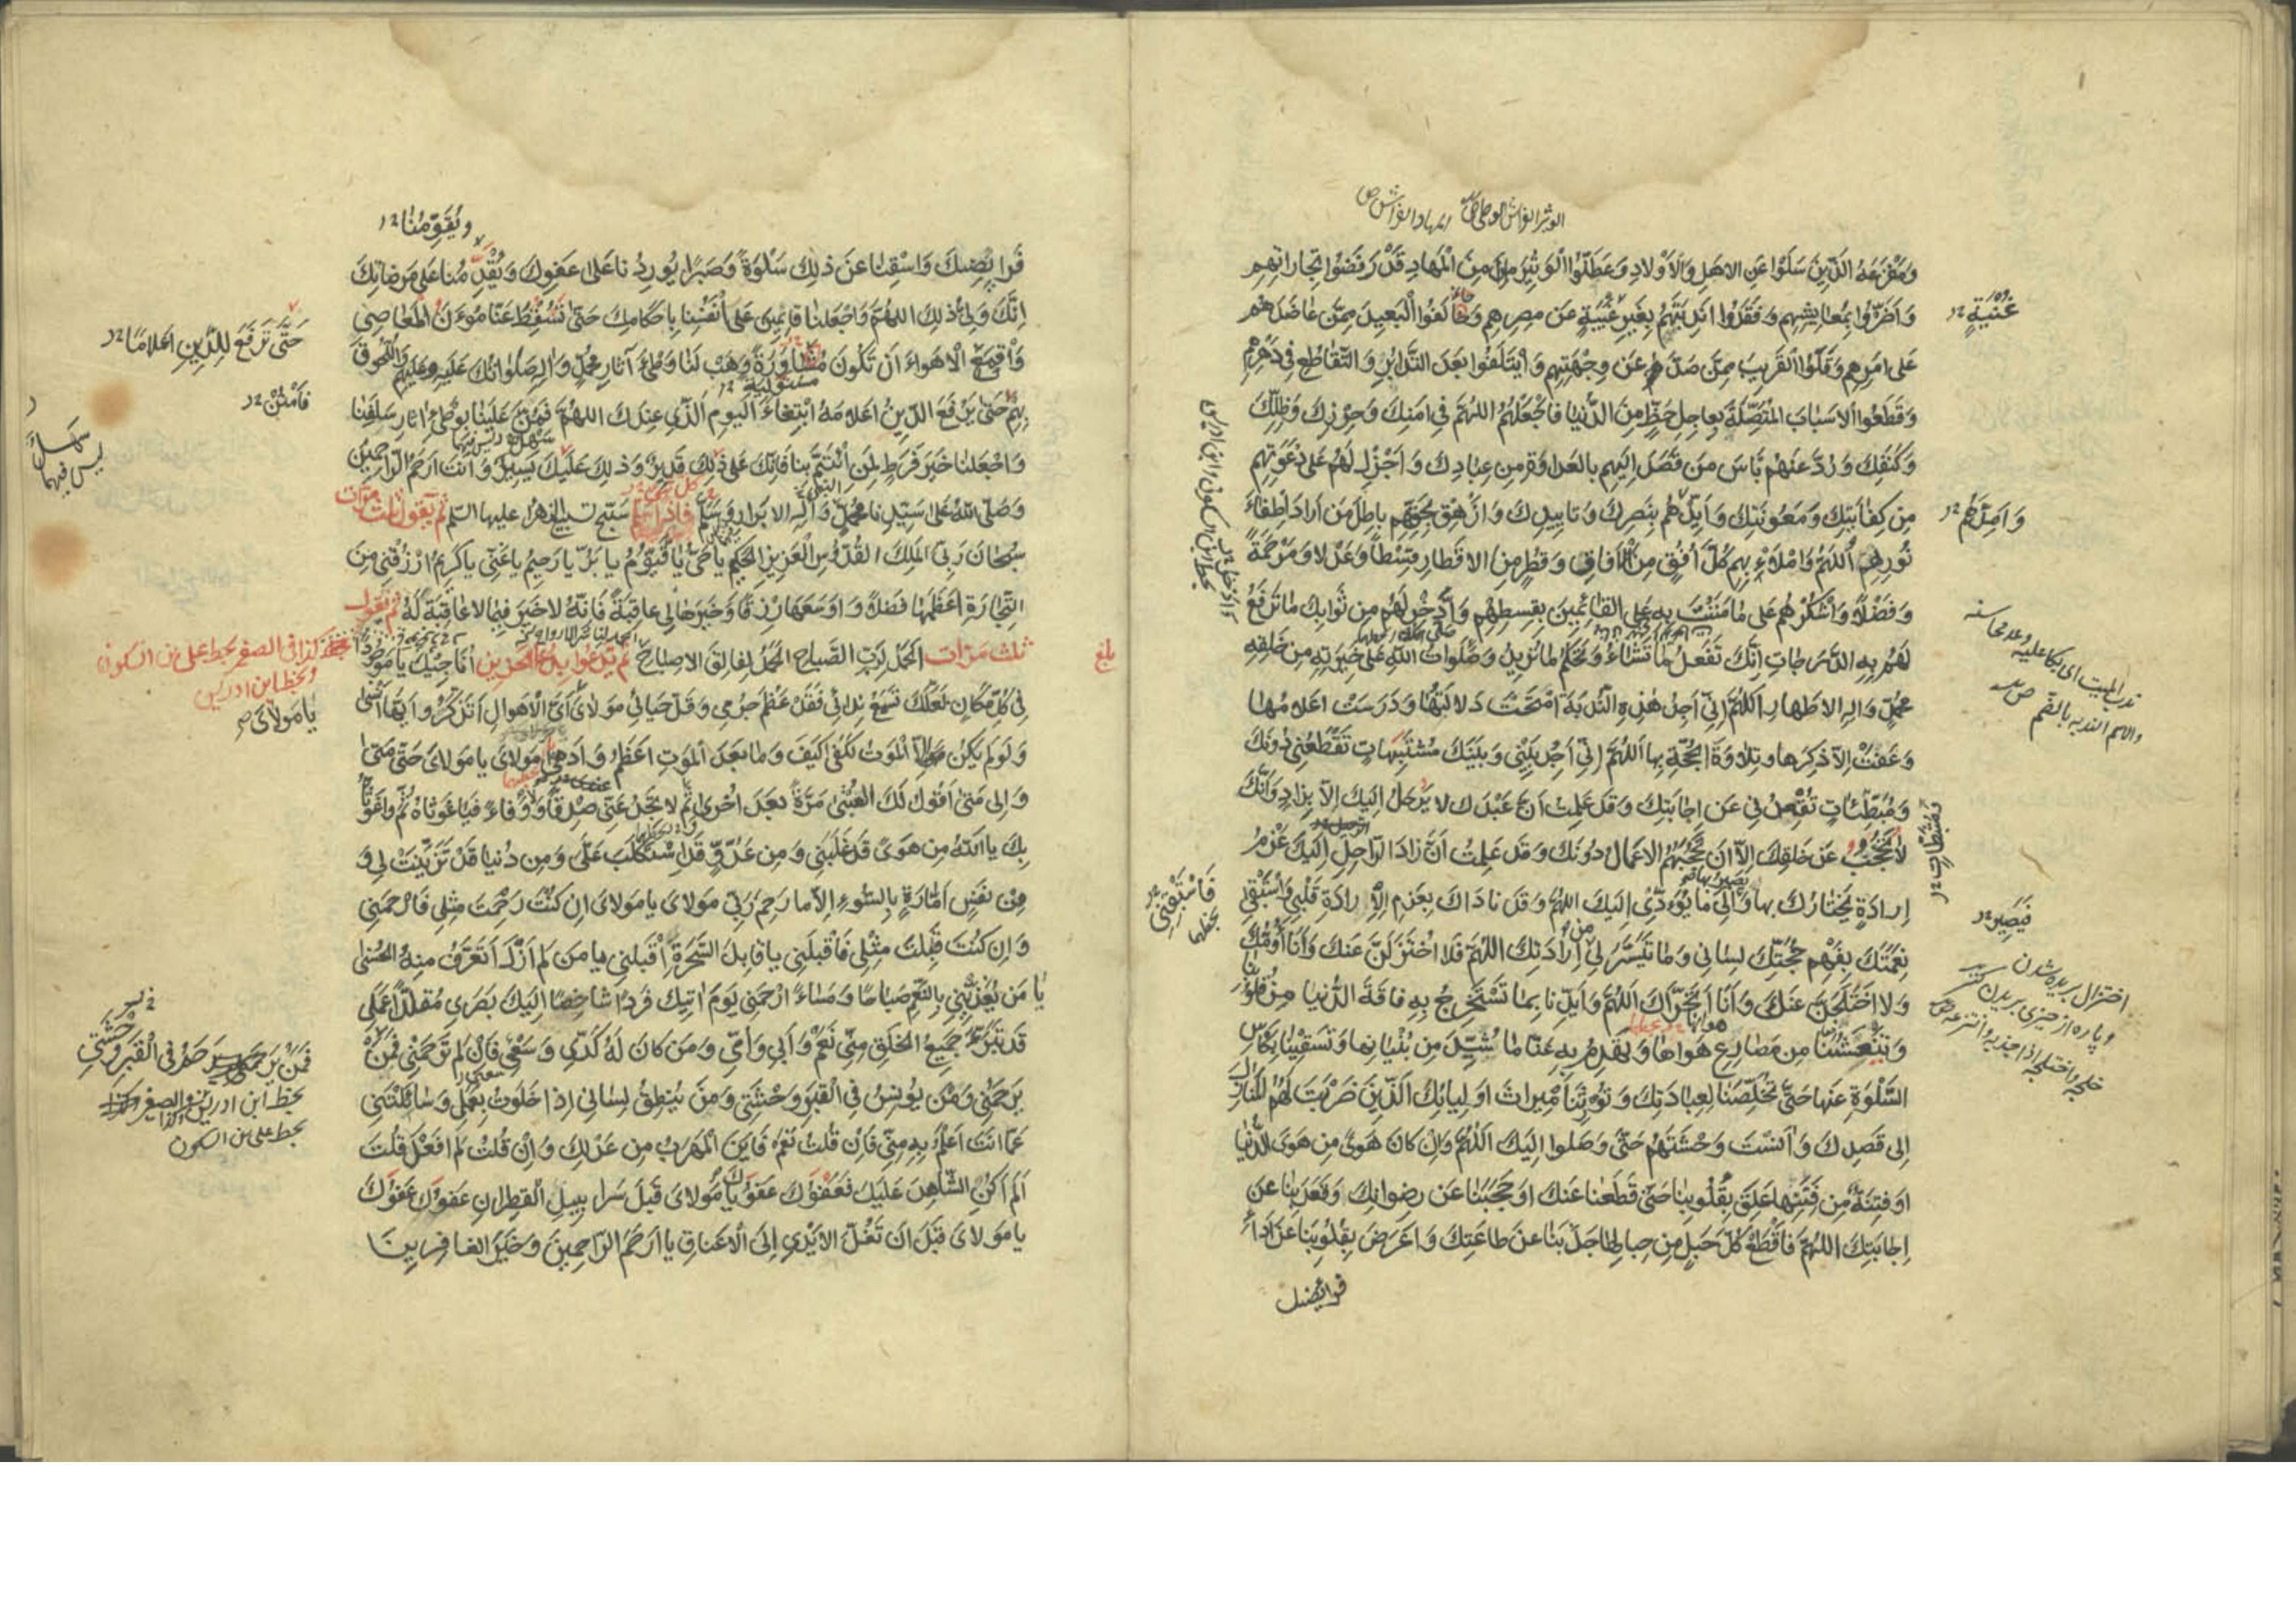 الوثير الفراش الوطي ص المهاد الفراش ص
وَمَفْزَعَهُ الَّذِينَ سَلَوْا عَنِ الاهَلِ وَالاَوْلادِ وَعَطَّلُوا الْوَثِيرَ مِنَ الْمَهادِ قَدْ رَفَضُوا تِجاراتِهِم
وَاَضَرُّوا بِمَعايِشِهِم وَفُقِدُوا اَنْدِيَتَهُمْ بِغَيرِ غَيْبَةٍ عَن مِصرِهِم وَحالَفُوا الْبَعيدَ مِمَّن عاضَدَهُم
غُنْيَةٍ
عَلى اَمرِهِم وَقَلَوُا القَريبَ مِمَّن صَدَّ عَن وِجْهَتِهِم وَايْتَلَفُوا بَعدَ التَّدابُرِ وَالتَّقاطُعِ فِى دَهْرِهِمْ
وَقَطَعُوا الاَسبابَ المُتَّصِلَةَ بِعاجِلِ حَظٍّ مِنَ الدُّنيا فَاجْعَلْهُم اللهُمَّ فِى اَمْنِكَ وَحِرْزِكَ وَظِلِّكَ
وَكَنَفِكَ وَرُدَّ عَنهُم بَأسَ مَن قَصَدَ اِلَيهِم بِالعَداوَةِ مِن عِبادِكَ وَاَجْزِل لَهُم عَلى دَعْوَتِهِم
مِن كِفايَتِكَ وَمَعُونَتِكَ وَاَيِّدْهُم بِنَصرِكَ وَتاييدِكَ وَازْهِقْ بِحَقِّهِم باطِلَ مَن اَرادَ اِطفاءَ
وَاَمِدَّهُم
نُورِهِم اَللهُمَّ وَامْلَاءْ بِهِم كُلَّ اُفُقٍ مِنَ الآفاقِ وَقُطْرٍ مِنَ الاَقطارِ قِسْطاً وَعَدْلا وَمَرْحَمَةً
وَفَضْلاً وَاشْكُرْهُم عَلى ما مَنَنْتَ بِهِ عَلَى القائِمينَ بِقِسطِهِم وَادَّخِر لَهُم مِن ثَوابِكَ ما تَرفَعُ
لَهُم بِهِ الدَّرَجاتِ اِنَّكَ تَفعَلُ ما تَشاءُ وَتَحكُمُ ما تُريدُ وَصَلَواتُ اللهِ عَلى خِيَرَتِهِ مِن خَلقِهِ
محمّدٍ وَالِهِ الاَطهارِ اَللهُمَّ اِنّى اَجِدُ هٰذِهِ النُّدبَةَ امْتَحَتْ دَلالَتُها وَدَرَسَتْ اَعلامُها
ندب الميت اى بكا عليه وعد محاسنه
والاسم الندبه بالضم ص
وَعَفَتْ اِلاّ ذِكرَها وَتِلاوَةَ الحُجَّةِ بِها اَللهُمَّ اِنّى اَجِدُ بَيْنى وَبَيْنَكَ مُشْتَبِهاتٍ تَقْطَعُنى دُونَكَ
وَمُبَطِّئاتٍ تُقْعِدُنى عَن اِجابَتِكَ وَقَد عَلِمتُ اَنَّ عَبْدَكَ لا يَرحَلُ اِلَيكَ اِلاّ بِزادٍ وَاَنَّكَ
لا تَحْجُبُ عَن خَلقِكَ اِلاّ اَن تَحْجُبَهُمُ الاَعمالُ دُونَكَ وَقَد عَلِمتُ اَنَّ زادَ الرّاحِلِ اِلَيكَ عَزْمُ
اِرادَةٍ يَختارُكَ بِها وَيَصيرُ بِها اِلى ما يُؤَدّى اِلَيكَ اللهُمَّ وَقَد ناداكَ بِعَزمِ الاِرادَةِ قَلْبى وَاسْتَبقى
فَيَصيرُ
فَاسْتَبْقِنى
نِعْمَتَكَ بِفَهْمِ حُجَّتِكَ لِسانى وَما تَيَسَّرَ لى مِن اِرادَتِكَ اللهُمَّ فَلا اُخْتَزَلَنَّ عَنكَ وَاَنَا اَؤُمُّكَ
اختزال بريده شدن
وپاره از چيزى بريدن
خلجه واختلجه اذا جذبه وانتزعه ص
وَلا اُخْتَلَجَنَّ عَنكَ وَاَنَا اَتَحَرّاكَ اَللهُمَّ وَاَيِّدنا بِما تَسْتَخرِجُ بِهِ فاقَةَ الدُّنيا مِن قُلُوبِنا
وَتَنْعَشُنا مِن مَصارِعِ هَوانِها وَتَهْدِمُ بِهِ عَنّا ما شُيِّدَ مِن بُنْيانِها وَتَسقينا بِكَاْسِ
السَّلْوَةِ عَنها حَتّى تُخَلِّصَنا لِعِبادَتِكَ وَتُورِثَنا مِيراثَ اَوْلِيائِكَ الَّذينَ ضَرَبْتَ لَهُمُ المَنازِلَ
اِلى قَصدِكَ وَآنَسْتَ وَحْشَتَهُم حَتّى وَصَلوا اِلَيكَ اَللهُمَّ وَاِنْ كانَ هَوىً مِن هَوَى الدُّنيا
اَو فِتنَةٌ مِن فِتَنِها عَلِقَ بِقُلُوبِنا حَتّى قَطَعَنا عَنكَ اَو حَجَبَنا عَن رِضوانِكَ وَقَعَدَ بِنا عَن
اِجابَتِكَ اللهُمَّ فَاقْطَعْ كُلَّ حَبلٍ مِن حِبالِها جَذَبَنا عَن طاعَتِكَ وَاَعرَضَ بِقُلُوبِنا عَن اَداءِ
فرايضك
وَيُقَوِّمُنا
فَرايِضِكَ وَاسْقِنا عَن ذلِكَ سَلْوَةً وَصَبْرًا يُورِدُنا عَلى عَفوِكَ وَيُقْدِمُنا عَلى مَرضاتِكَ
اِنَّكَ وَلِىُّ ذلِكَ اللهُمَّ وَاجْعَلنا قائِمينَ عَلى اَنْفُسِنا بِاَحكامِكَ حَتّى تُسْقِطَ عَنّا مُؤَنَ المَعاصِى
حَتّى تَرفَعَ لِلدّينِ اَعلامًا
وَاقْمَعِ الاَهواءَ اَن تَكُونَ مُشاوَرَةً وَهَبْ لَنا وَطْىءَ آثارِ محمّدٍ وَآلِهِ صَلَواتُكَ عَلَيهِ وَعَلَيهِم وَاللُّحُوقَ
بِهِم حَتّى يَرفَعَ الدّينُ اَعلامَهُ ابْتِغاءَ اليَومِ الَّذى عِندَكَ اللهُمَّ فَمُنَّ عَلَينا بِوَطْىءِ اثارِ سَلَفِنا
فَامْنُنْ
وَاجْعَلنا خَيرَ فَرَطٍ لِمَنِ ائْتَمَّ بِنا فَاِنَّكَ عَلى ذلِكَ قَديرٌ وَذلِكَ عَلَيكَ يَسيرٌ وَاَنتَ اَرحَمُ الرّاحِمينَ
سَهلٌ
ليس فيهما
وَصَلّى اللهُ عَلى سَيِّدِنا محمّدٍ وَآلِهِ الاَبرارِ وَسَلَّمَ فاذا سلّم سبّح تسبيح الزهرا عليها السلم ثم يقول ثلث مرات
سُبْحانَ رَبِّىَ المَلِكِ القُدُّوسِ العَزيزِ الحَكيمِ يا حَىُّ يا قَيُّومُ يا بَرُّ يا رَحيمُ يا غَنِىُّ يا كَريمُ ارْزُقْنى مِنَ
التِّجارَةِ اَعظَمَها فَضلاً وَاَوسَعَها رِزقًا وَخَيرَها لى عاقِبَةً فَاِنَّهُ لا خَيرَ فيما لا عاقِبَةَ لَهُ ثم تقول
ثلث مرات اَلحَمدُ لِرَبِّ الصَّباحِ الحَمدُ لِفالِقِ الاِصباحِ ثم تدعوا بدعاء الحزين اُناجيكَ يا مَوجُودًا
كذا فى الصغير بخط على بن السكون
وبخط ابن ادريس
يا مَولاىَ
بلغ
فى كُلِّ مَكانٍ لَعَلَّكَ تَسْمَعُ نِدائى فَقَد عَظُمَ جُرمى وَقَلَّ حَيائى مَولاىَ اَىَّ الاَهوالِ اَتَذَكَّرُ وَاَيَّها اَنسى
وَلَو لَم يَكُن اِلاَّ الْمَوتُ لَكَفى كَيفَ وَما بَعدَ المَوتِ اَعظَمُ وَاَدهى مَولاىَ يا مَولاىَ حَتّى مَتى
وَاِلى مَتى اَقُولُ لَكَ العُتْبى مَرَّةً بَعدَ اُخرى ثُمَّ لا تَجِدُ عِندى صِدقًا وَلا وَفاءً فَيا غَوْثاهُ ثُمَّ واغَوْثاهُ
بِكَ يا اَللهُ مِن هَوىً قَد غَلَبَنى وَمِن عَدُوٍّ قَدِ اسْتَكْلَبَ عَلَىَّ وَمِن دُنيا قَد تَزَيَّنَتْ لى وَ
مِنْ نَفسٍ اَمّارَةٍ بِالسُّوءِ اِلاّ ما رَحِمَ رَبّى مَولاىَ يا مَولاىَ اِن كُنتَ رَحِمتَ مِثلى فَارحَمنى
وَاِن كُنتَ قَبِلتَ مِثْلى فَاقْبَلنى يا قابِلَ السَّحَرَةِ اَقْبِلنى يا مَن لَم اَزَلْ اَتَعَرَّفُ مِنهُ الحُسْنى
يا مَن يُغَذّينى بِالنِّعَمِ صَباحًا وَمَساءً ارْحَمنى يَومَ اتيكَ فَردًا شاخِصًا اِلَيكَ بَصَرى مُقَلَّداً عَمَلى
قَد تَبَرَّءَ جَميعُ الخَلقِ مِنّى نَعَمْ وَاَبى وَاُمّى وَمَن كانَ لَهُ كَدّى وَسَعيى فَاِنْ لَم تَرحَمنى فَمَنْ
فَمَنْ يَرحَمُ صَفَرى فى القَبرِ وَحْشَتى
بخط ابن ادريس
بخط على بن السكون
يَرحَمُنى وَمَن يُونِسُ فِى القَبرِ وَحْشَتى وَمَن يُنطِقُ لِسانى اِذا خَلَوتُ بِعَمَلى وَسائَلْتَنى
عَمّا اَنتَ اَعلَمُ بِهِ مِنّى فَاِن قُلتُ نَعَم فَاَينَ المَهرَبُ مِن عَدلِكَ وَاِنْ قُلتُ لَم اَفعَلْ قُلتَ
اَلَم اَكُنِ الشّاهِدَ عَلَيكَ فَعَفوُكَ عَفوُكَ يا مَولاىَ قَبلَ سَرابيلِ القَطِرانِ عَفوُكَ عَفوُكَ
يا مَولاىَ قَبلَ اَن تُغَلَّ الاَيْدى اِلَى الاَعناقِ يا اَرحَمَ الرّاحِمينَ وَخَيرَ الغافِرينَ